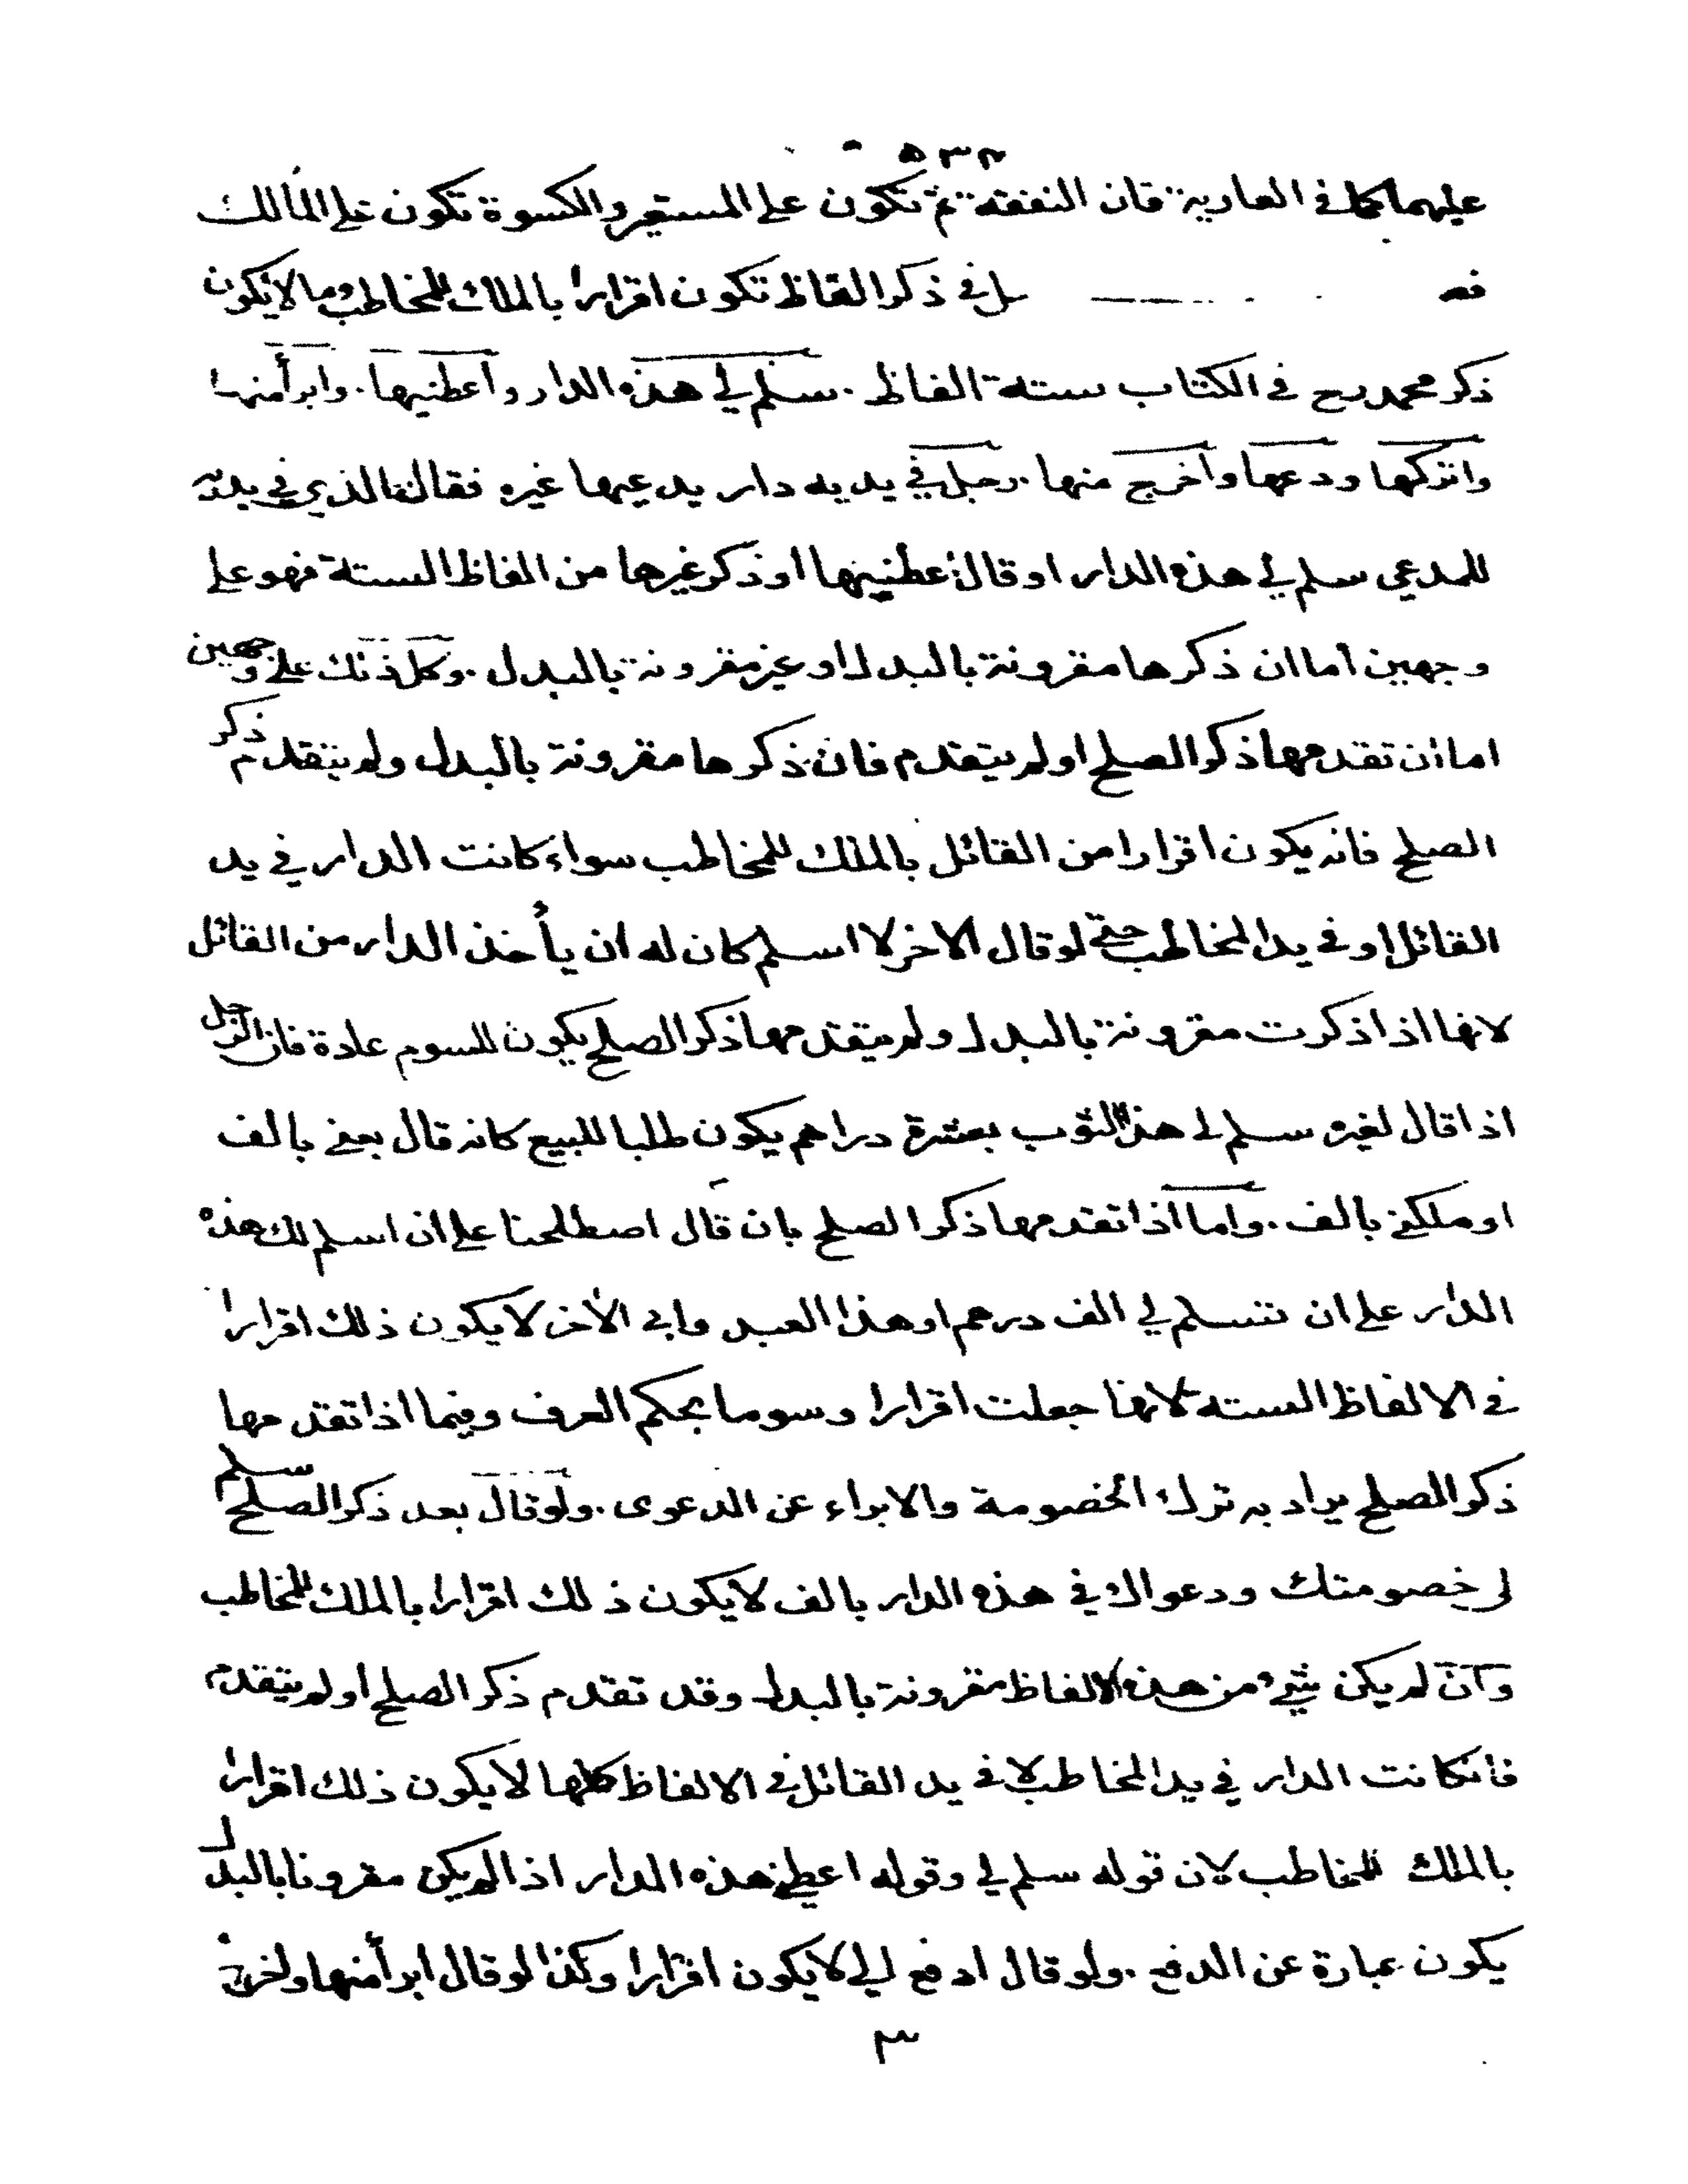 ٥٣٢
عليهما كما فى العارية فان النفقة ثم تكون على المستعير والكسوة تكون على المالك
فصـــل في ذكر الفاظ تكون اقرارا بالملك للمخاطب وما لا يكون
ذكر محمد رح في الكتاب ستة الفاظ . سلم لي هذه الدار وأعطنيها . وابرأ منها
واتركها ودعها وأخرج منها . رجل في يديه دار يدعيها غيره فقال الذي في يديه
للمدعي سلم لي هذه الدار او قال أعطنيها او ذكر غيرها من الفاظ الستة فهو على
وجهين اما ان ذكرها مقرونة بالبدل او غير مقرونة بالبدل . وكل ذلك على وجهين
اما ان تقدمها ذكر الصلح او لم يتقدم فان ذكرها مقرونة بالبدل ولم يتقدم ذكر
الصلح فانه يكون اقرارا من القائل بالملك للمخاطب سواء كانت الدار في يد
القائل او في يد المخاطب حتى لو قال الاخر لا اسلم كان له ان يأخذ الدار من القائل
لانها اذا ذكرت مقرونة بالبدل ولم يتقدمها ذكر الصلح يكون للسوم عادة فان الرجل
اذا قال لغيره سلم لى هذا الثوب بعشرة دراهم يكون طلبا للبيع كانه قال بعنى بالف
او ملكنى بالف . واما اذا تقدمها ذكر الصلح بان قال اصطلحنا على ان اسلم لك هذه
الدار على ان تسلم لي الف درهم او هذا العبد وابى الأخر لا يكون ذلك اقرارا
في الالفاظ الستة لانها جعلت اقرارا وسوما بحكم العرف وفيما اذا تقدمها
ذكر الصلح يراد به ترك الخصومة والابراء عن الدعوى . ولو قال بعد ذكر الصلح سلم
لى خصومتك ودعواك في هذه الدار بالف لا يكون ذلك اقرارا بالملك للمخاطب
وان لم يكن شيء من هذه الالفاظ مقرونة بالبدل وقد تقدم ذكر الصلح او لم يتقدم
فانكانت الدار في يد المخاطب لا في يد القائل في الالفاظ كلها لا يكون ذلك اقرارا
بالملك للمخاطب لان قوله سلم لي وقوله اعطنى هذه الدار اذا لم يكن مقرونا بالبدل
يكون عبارة عن الدفع . ولو قال ادفع الي لا يكون اقرارا وكذا لو قال ابرأ منها واخرج
٣